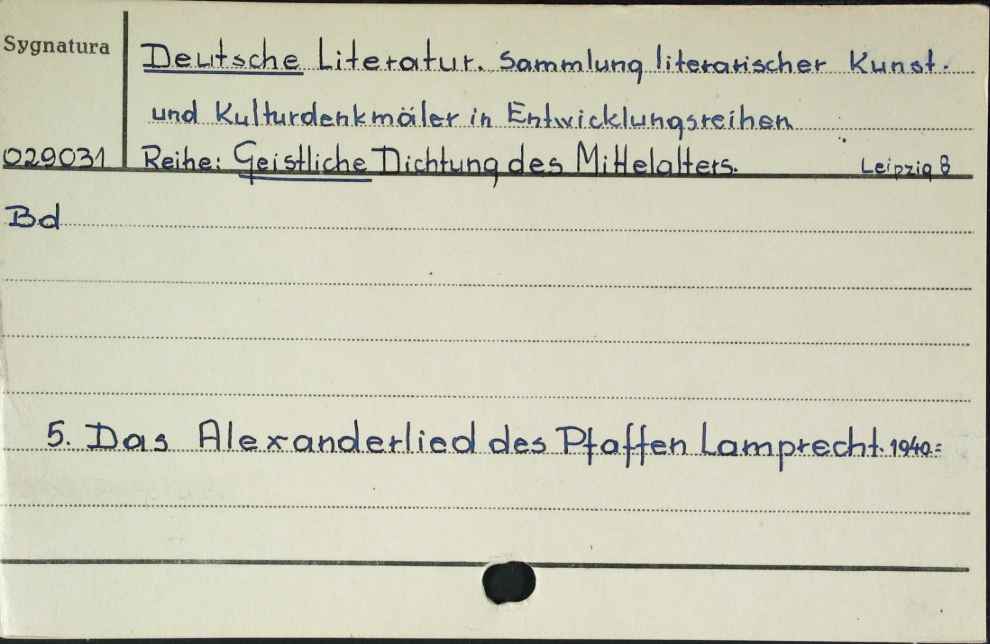 Sygnatura
Deutsche Literatur. Sammlung literarischer Kunst-
und Kulturdenkmäler in Entwicklungsreihen
029031 Reihe: Geistliche Dichtung des Mittelalters. Leipzig 8
Bd
5. Das Alexanderlied des Pfaffen Lamprecht. 1940.=